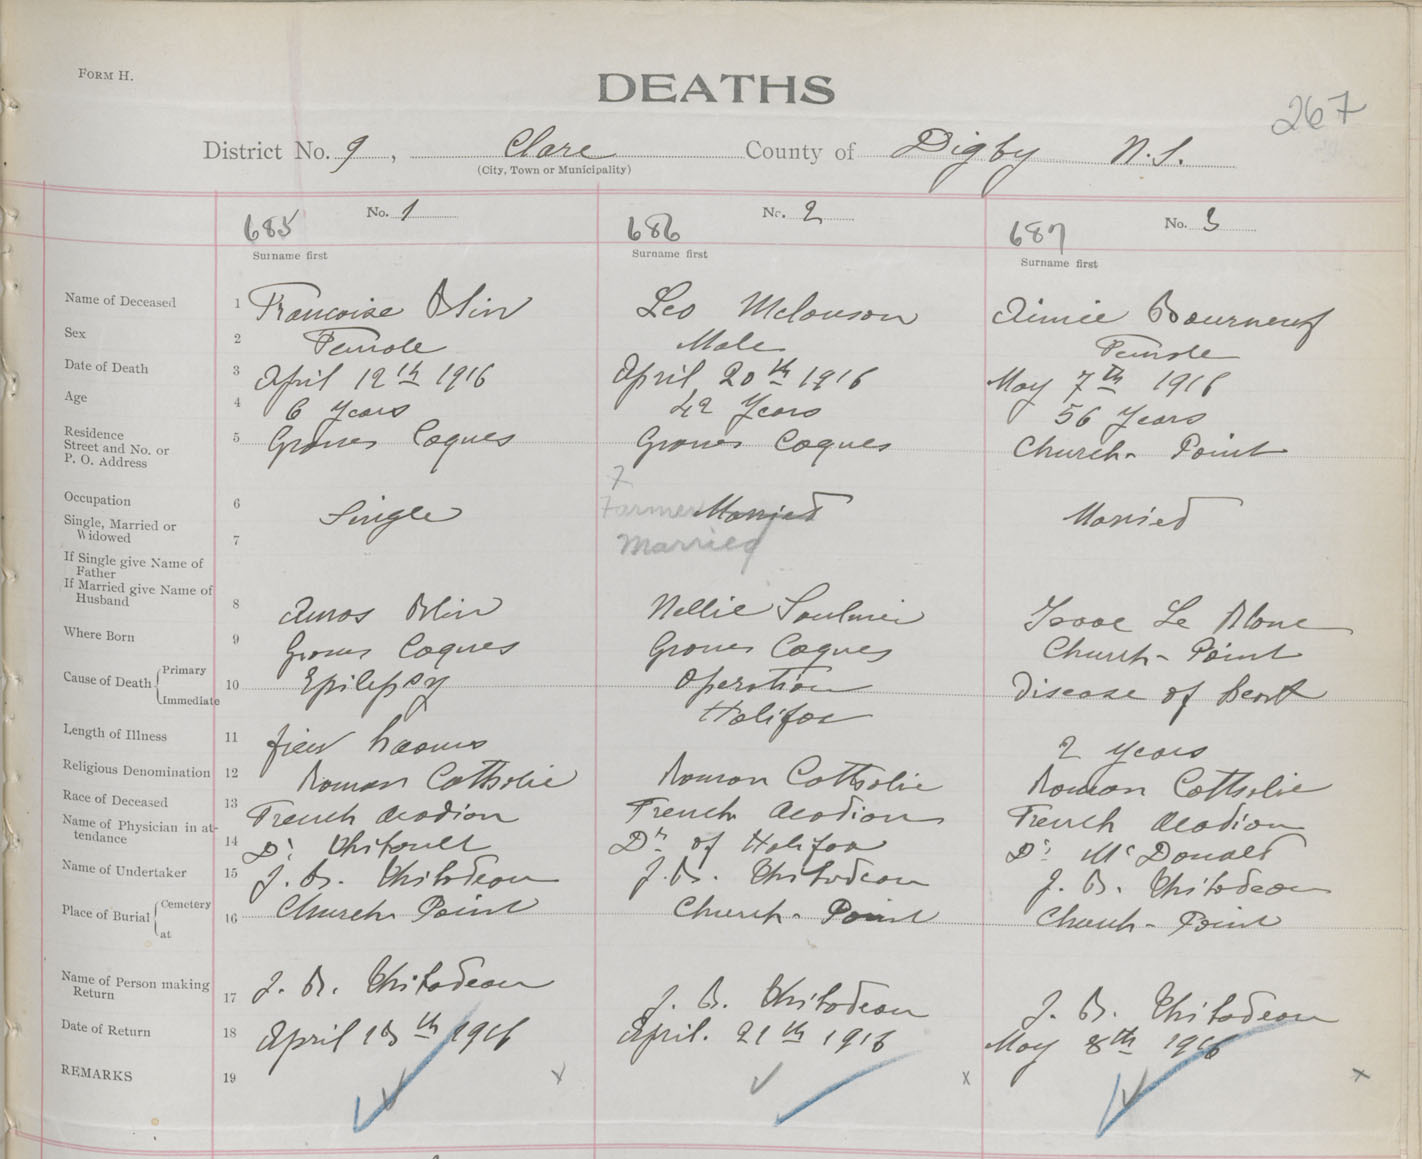 FORM H.
DEATHS
267
District No. 9, Clare County of Digby N.S.
(City, Town or Municipality)
No. 1 No. 2 No. 3
685 686 687
Surname first Surname first Surname first
Name of Deceased 1 Francoise Blin Leo Melonson Aimie Bourneuf
Sex 2 Female Male Female
Date of Death 3 April 12th 1916 April 20th 1916 May 7th 1916
Age 4 6 years 42 years 56 years
Residence
Street and No. or
P. O. Address 5 Groses Coques Groses Coques Church-Point
Occupation 6 Farmer
Single, Married or
Widowed 7 Single Married Married
Married
If Single give Name of
Father
If Married give Name of
Husband 8 Amos Blin Nellie Soulnier Isaac Le Blanc
Where Born 9 Groses Coques Groses Coques Church-Point
Cause of Death Primary
Immediate 10 Epilepsy Operation Disease of heart
Halifax
Length of Illness 11 few hours 2 years
Religious Denomination 12 Roman Catholic Roman Catholic Roman Catholic
Race of Deceased 13 French Acadian French Acadian French Acadian
Name of Physician in at-
tendance 14 Dr. Dr of Halifax Dr. McDonald
Name of Undertaker 15 J. B. Thibodeau J. B. Thibodeau J. B. Thibodeau
Place of Burial Cemetery
at 16 Church-Point Church-Point Church-Point
Name of Person making
Return 17 J. B. Thibodeau J. B. Thibodeau J. B. Thibodeau
Date of Return 18 April 13th 1916 April. 21th 1916 May 8th 1916
REMARKS 19 x x x